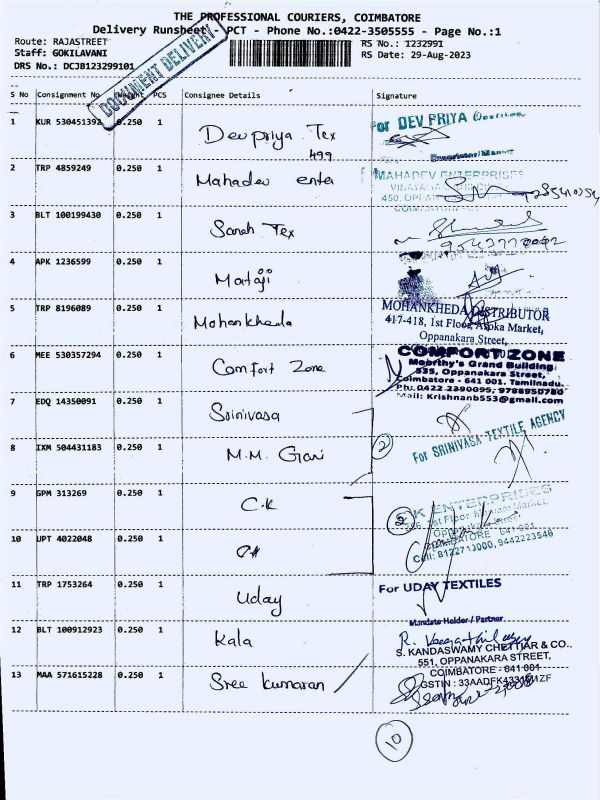 THE PROFESSIONAL COURIERS, COIMBATORE
Delivery Runsheet - PCT - Phone No.:0422-3505555 - Page No.:1
Route: RAJASTREET
RS No.: 1232991
Staff: GOKILAVANI
RS Date: 29-Aug-2023
DRS No.: DCJB123299101
DOCUMENT DELIVERY
S No Consignment No Weight PCS Consignee Details Signature
1 KUR 530451392 0.250 1 Devpriya Tex
499
For DEV PRIYA Textiles
2 TRP 4859249 0.250 1 Mahadev enter
MAHADEV ENTERPRISES
3 BLT 100199430 0.250 1 Sarah Tex
4 APK 1236599 0.250 1 Mataji
5 TRP 8196089 0.250 1 Mohankheda
MOHANKHEDA DISTRIBUTOR
417-418, 1st Floor, Asoka Market,
Oppanakara Street,
6 MEE 530357294 0.250 1 Comfort Zone
COMFORT ZONE
Moorthy's Grand Building
535, Oppanakara Street,
Coimbatore - 641 001. Tamilnadu.
Ph: 0422 2390095, 9788950780
Mail: Krishnanb553@gmail.com
7 EDQ 14350091 0.250 1 Srinivasa
For SRINIVASA TEXTILE AGENCY
8 IXM 504431183 0.250 1 M.M. Gani
2
9 GPM 313269 0.250 1 C.K
C.K ENTERPRISES
2
10 UPT 4022048 0.250 1
COIMBATORE 641 001
9442223546
11 TRP 1753264 0.250 1 Uday
For UDAY TEXTILES
Mandate Holder / Partner
12 BLT 100912923 0.250 1 Kala
S. KANDASWAMY CHETTIAR & CO.,
551, OPPANAKARA STREET,
COIMBATORE - 641 001
13 MAA 571615228 0.250 1 Sree Kumaran
10